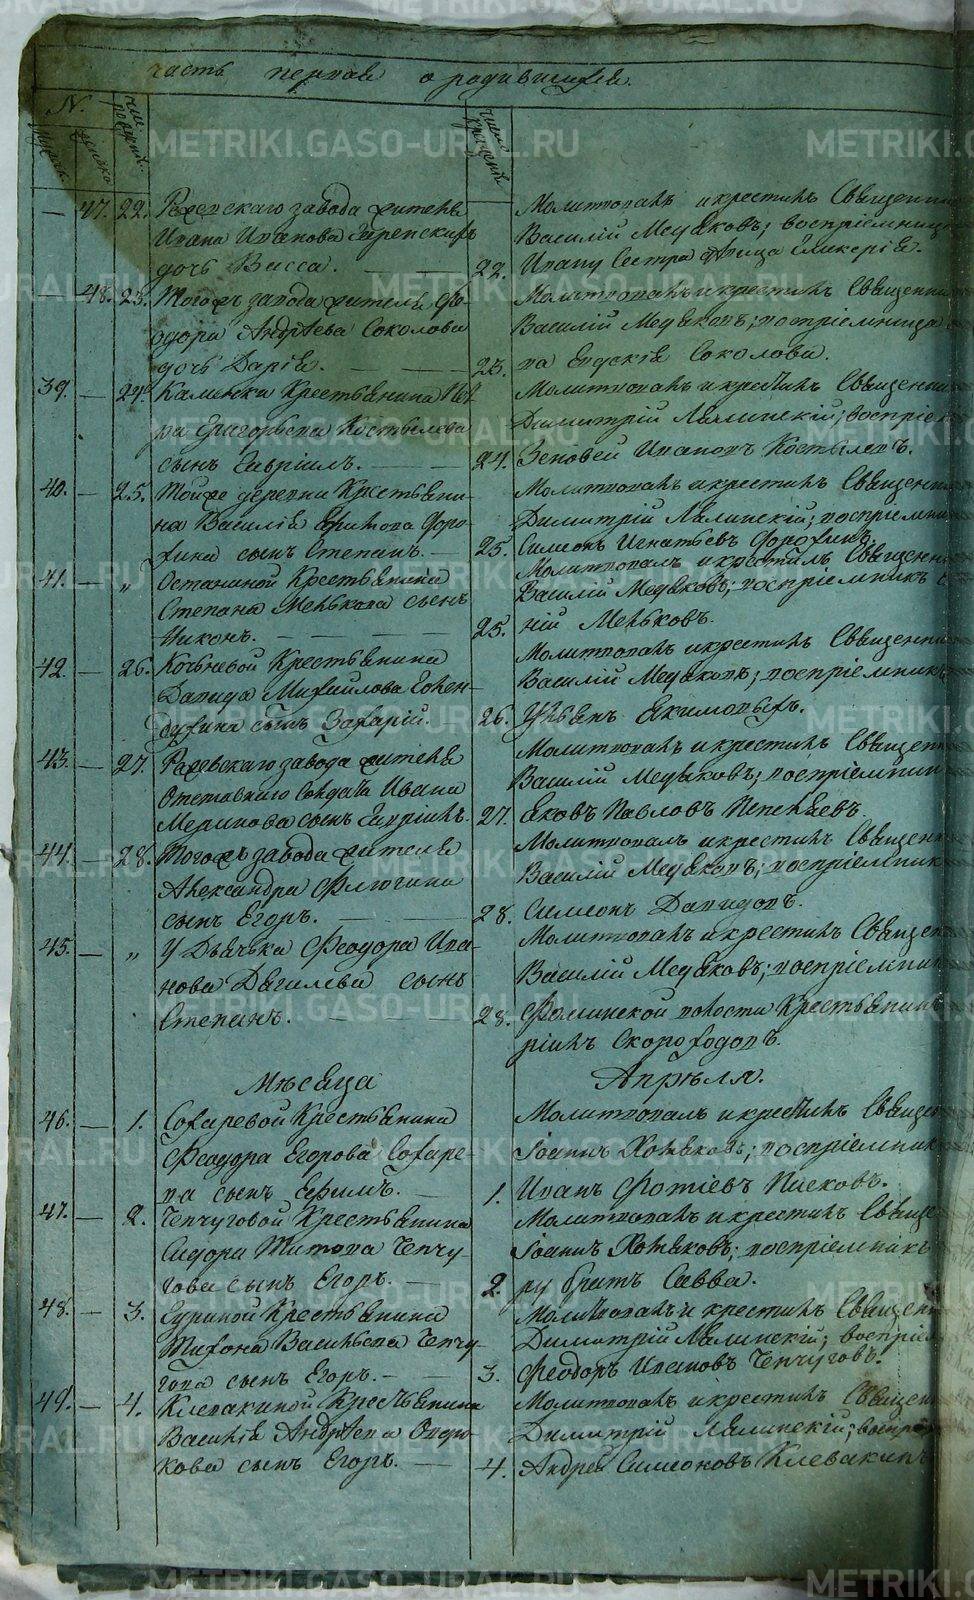 часть первая о родившихся
№
Мужск.
женско
числ. рожден.
числ. крещенiя
— 47. 22. Режевскаго завода жителя
Ивана Иванова
дочь Васса.
22.
Молитвовалъ и крестилъ Священни
Василiй Медяковъ; воспрiемница
Ивану Сестра девица Гликерiя.
— 48. 23. Тогожъ завода жителя Фе-
одора Андрѣева Соколова
дочь Дарiя.
23.
Молитвовалъ и крестилъ Священни
Василiй Медяковъ; воспрiемница
ва Евдокiя Соколова.
39. — 24. Каменки Крестьянина Пет
ра Григорьева Костылева
сынъ Гаврiилъ.
24.
Молитвовалъ и крестилъ Священни
Димитрiй Лялинскiй; воспрiе
Зеновей Ивановъ Костылевъ.
40. — 25. Тойже деревни Крестьяни-
на Василiя Доро-
хина сынъ Степанъ.
25.
Молитвовалъ и крестилъ Священни
Димитрiй Лялинскiй; воспрiемни
Симеонъ Игнатьевъ Дорохинъ.
41. — „ Останиной Крестьянина
Степана Менькова сынъ
Никонъ.
25.
Молитвовалъ и крестилъ Священни
Василiй Медяковъ; воспрiемникъ
нiй Меньковъ.
42. — 26. Кочневой Крестьянина
Давида Михайлова
сынъ Захарiй.
26.
Молитвовалъ и крестилъ Священни
Василiй Медяковъ; воспрiемникъ
Ульянъ Екимовыхъ.
43. — 27. Режевскаго завода жителя
Отставнаго Солдата Ивана
Меринова сынъ Гаврiилъ.
27.
Молитвовалъ и крестилъ Священ
Василiй Медяковъ; воспрiемник
Яковъ Павловъ Пепеляевъ.
44. — 28. Тогожъ завода жителя
Александра Флюгина
сынъ Егоръ.
28.
Молитвовалъ и крестилъ Священ
Василiй Медяковъ; воспрiемник
Симеонъ Давидовъ.
45. — „ У Дьячка Феодора Ива-
нова Дягилева сынъ
Степанъ.
28.
Молитвовалъ и крестилъ Священ
Василiй Медяковъ; воспрiемник
Фоминской волости Крестьянинъ
рiилъ Скороходовъ.
Мѣсяца
Апрѣля.
46. — 1. Сохаревой Крестьянина
Феодора Егорова Сохаре-
ва сынъ Ефимъ.
1.
Молитвовалъ и крестилъ Священ
Iоаннъ Хотяковъ; воспрiемник
Иванъ ФотiевъПисковъ.
47. — 2. Чепчуговой Крестьянина
Сидора Титова Чепчу-
гова сынъ Егоръ.
2.
Молитвовалъ и крестилъ Священ
Iоаннъ Хотяковъ; воспрiемникъ
ру братъ Савва.
48. — 3. Гуриной Крестьянина
Тихона Васильева Чепчу-
гова сынъ Егоръ.
3.
Молитвовалъ и крестилъ Священ
Димитрiй Лялинскiй; воспрiе
Феодоръ Ивановъ Чепчуговъ.
49. — 4. Клевакиной Крестьянина
Василiя Андрѣева Опоро-
кова сынъ Егоръ.
4.
Молитвовалъ и крестилъ Священ
Димитрiй Лялинскiй; воспрiе
Андрей Симеоновъ Клевакинъ
METRIKI.GASO-URAL.RU